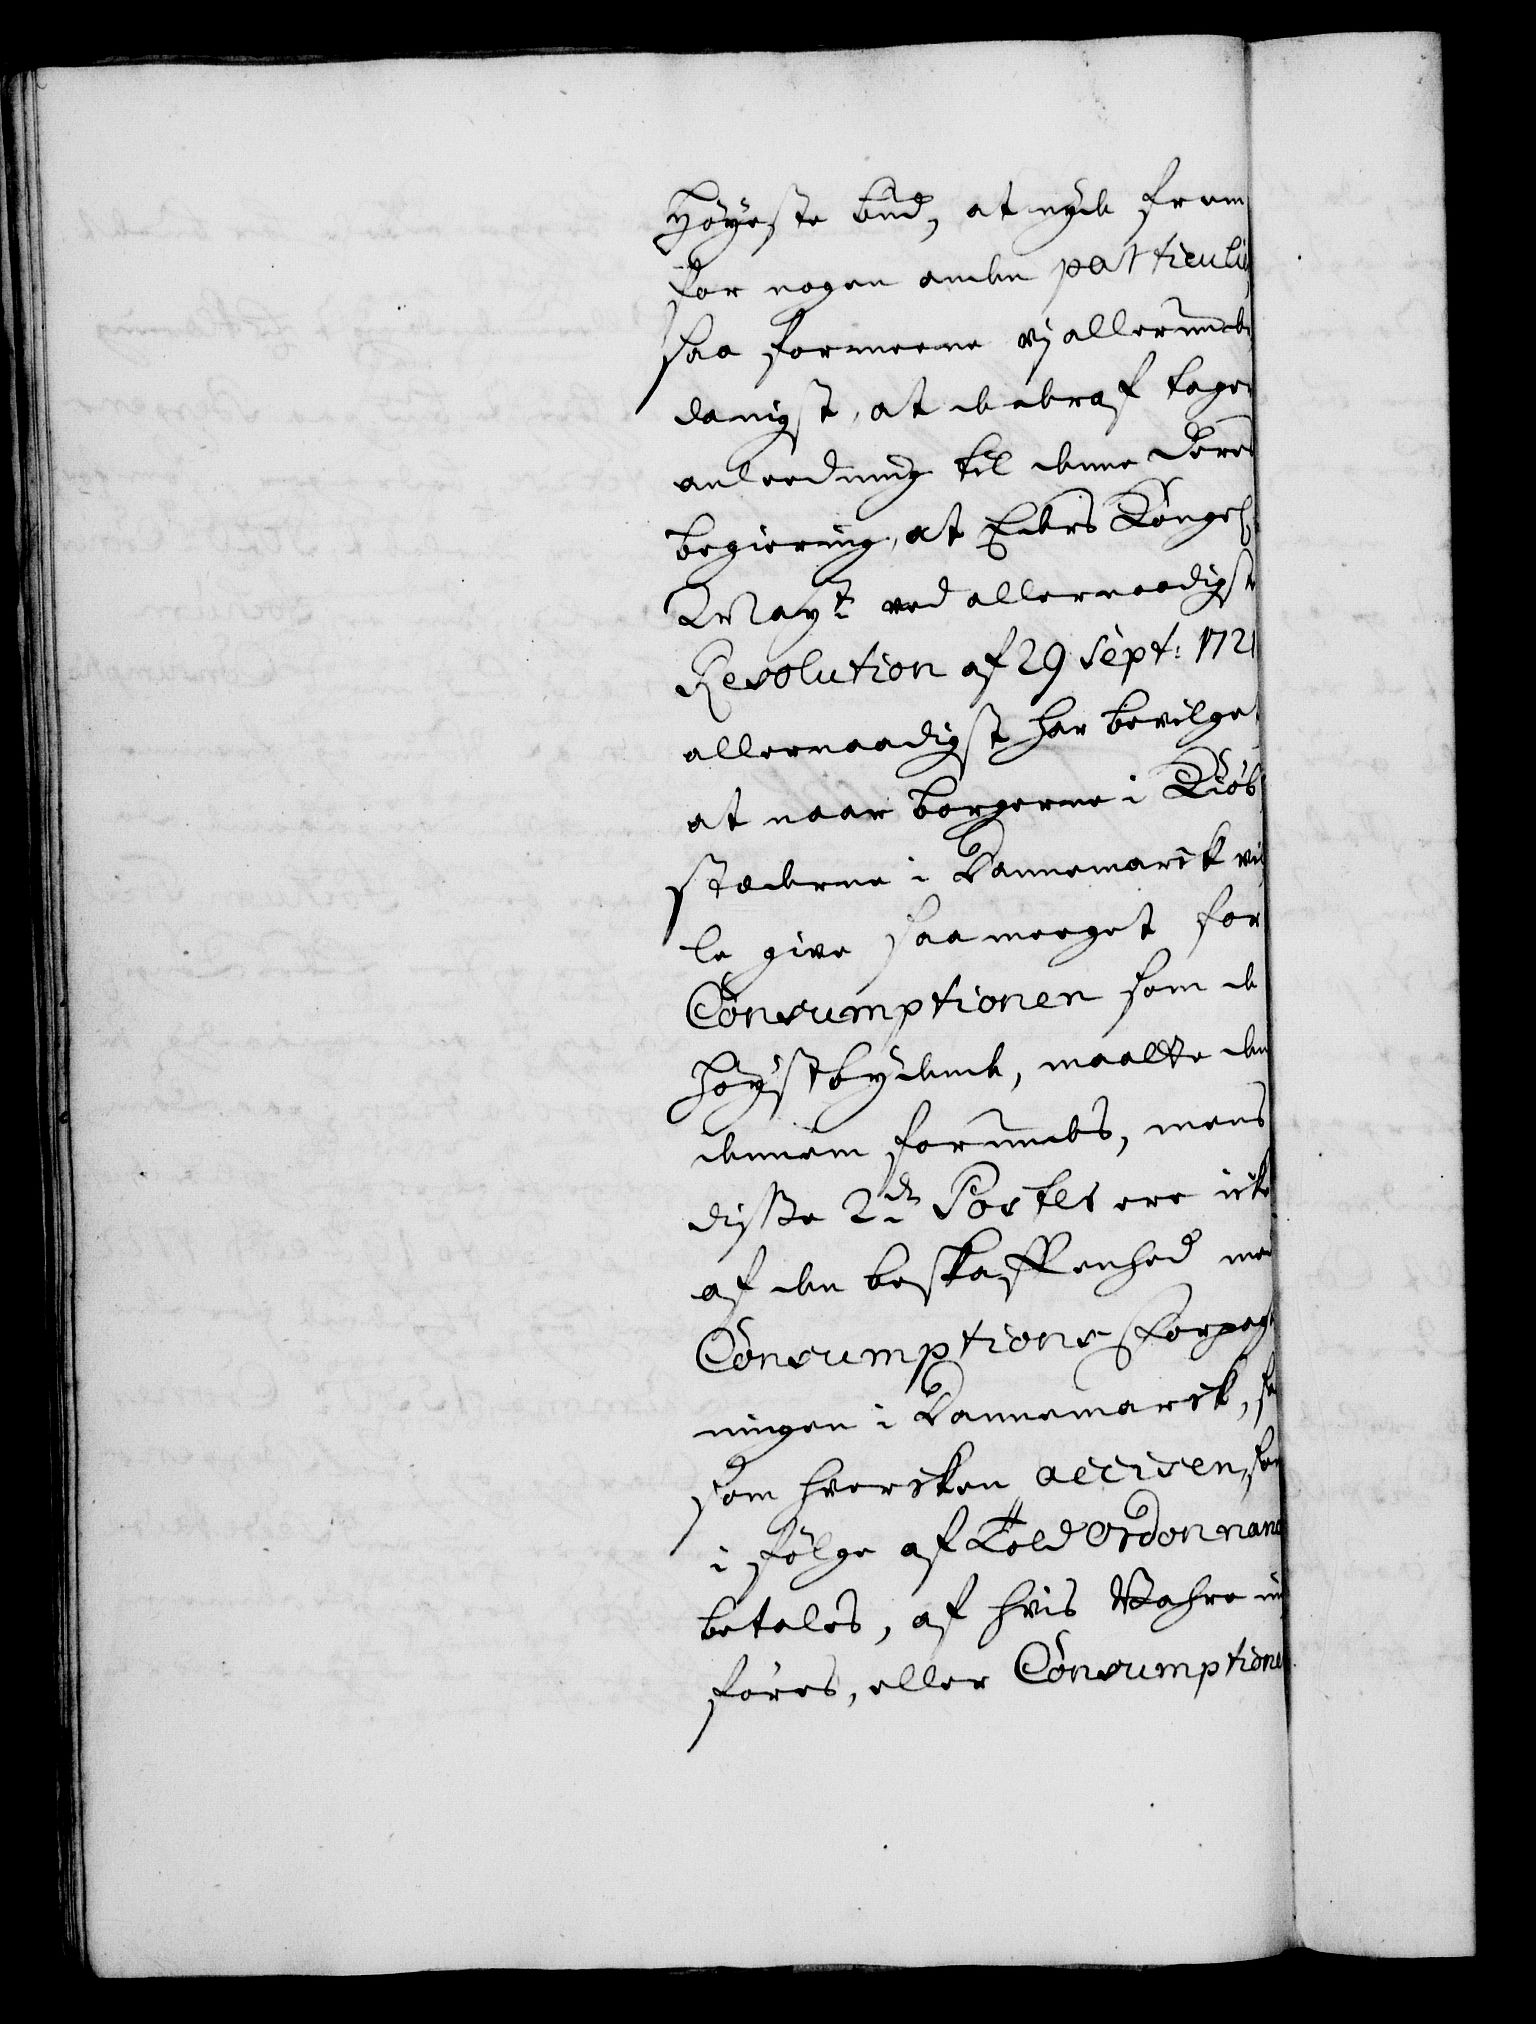 Høyeste bud, at nyde frem
for nogen anden particulie
saa formeene vj allerunde
danigst, at de deraf tager
anleedning til denne deres
begiering, at Eders Kongel:
Mayt: ved allernaadigste
Resolution af 29 Sept: 1721
allernaadigst har bevilget
at naar borgerne i Kiøb
stæderne i Dannemarck vil
le give saa meeget for
Consumptionen som de
høystbydende, maatte den
dennem forundes, mens
disse 2de Poster ere icke
af den beskaffenhed med
Consumptions Forpagt
ningen i Dannemarck, saa
som hvercken accisen, som
i følge af Told Ordonnance
betales, af hvis Wahre ind
føres, eller Consumptionen